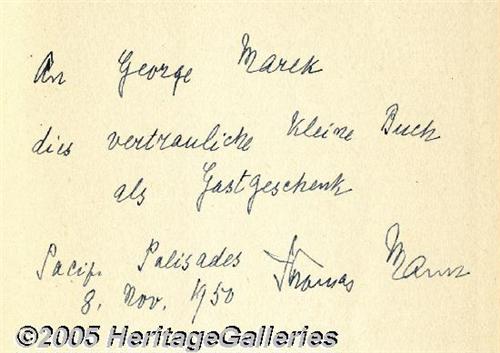 An George Marek
dies vertrauliche kleine Buch
als Gastgeschenk
Pacif. Palisades Thomas Mann
8. Nov. 1950
©2005 HeritageGalleries